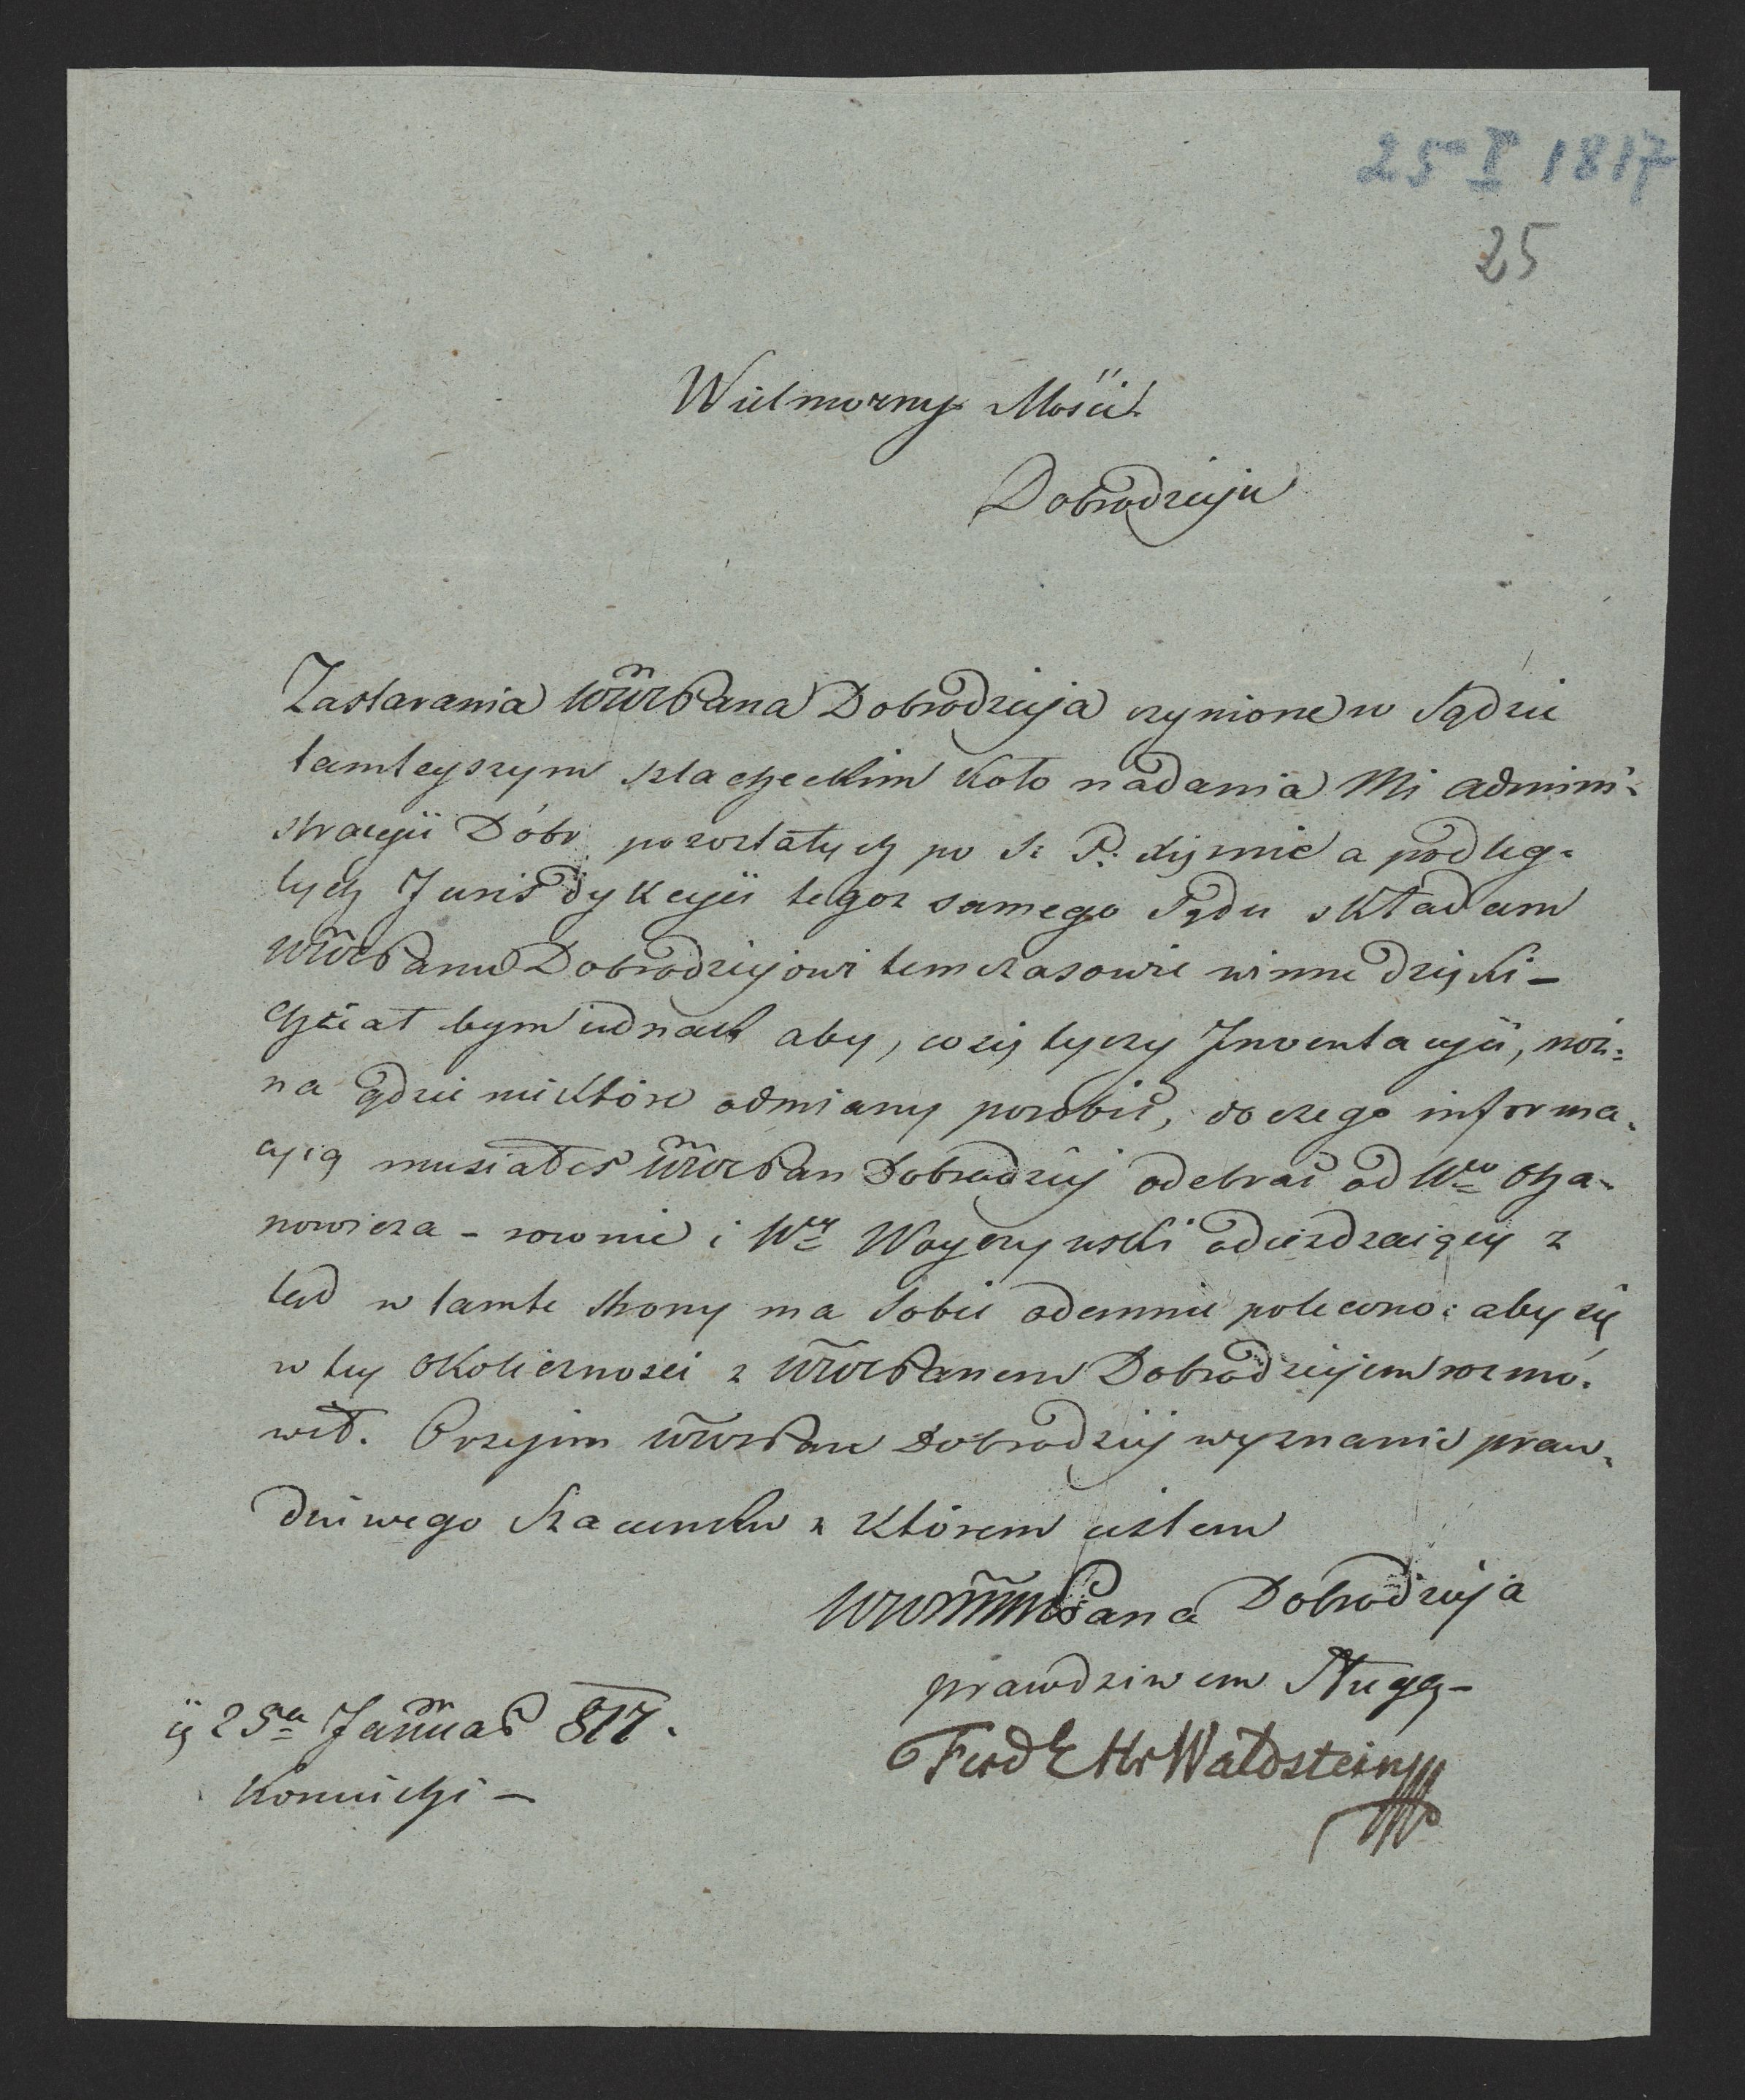 25 I 1817
25
Wielmorny Mości
Dobrodzieju
Zastarania WWPana Dobrodzieja czynione w Sądzie
tamteyszym szlacheckim koło nadania Mi admini-
stracyii Dóbr pozostałych po Ś: P: Xiężnie a podleg-
łych Jurisdykcyii tegoż samego Sądu składam
WWPanu Dobrodziejowi temczasowie winne dzięki –
Chciał bym iednak aby, co się tyczy Inventacyii, moż-
na gdzie niektóre odmiany porobić, do czego informa-
cyią musiałeś WWPan Dobrodziej odebrać od Wgo
nowicza – rownie i Wny odieżdzaiący z
tąd w tamte strony ma Sobie odemnie polecono: aby się
w tey okoliczności z WWPanem Dobrodziejem rozmó-
wił. Przyjm WWPan Dobrodziej wyznanie praw-
dziwego Szacunku z którem iestem
WWPana Dobrodzieja
prawdziwem Sługą –
Ferd E Hr Waldstein
25a Januar 817.